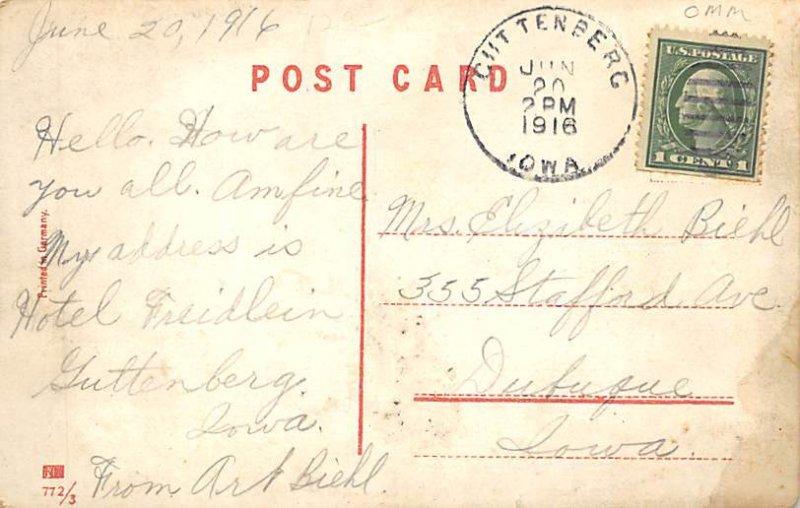 June 20, 1916
OMM
POST CARD
GUTTENBERG
JUN
20
2PM
1916
IOWA
U.S. POSTAGE
1 CENT 1
Hello. How are
you all. Am fine
My address is
Hotel Freidlein
Guttenberg.
Iowa.
From Art Biehl.
Mrs. Elizibeth Biehl
355 Stafford Ave
Dubuque
Iowa.
Printed in Germany.
772/3